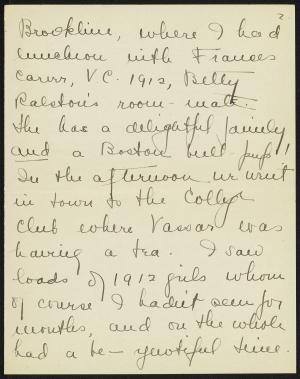 2
Brookline, where I had
luncheon with Frances
V.C. 1912, Betty
Ralston's room-mate.
She has a delightful family
and a Boston bull-pup!
In the afternoon we went
in town to the College
Club where Vassar was
having a tea. I saw
loads of 1912 girls whom
of course I hadn't seen for
months, and on the whole
had a be-yewtiful time.